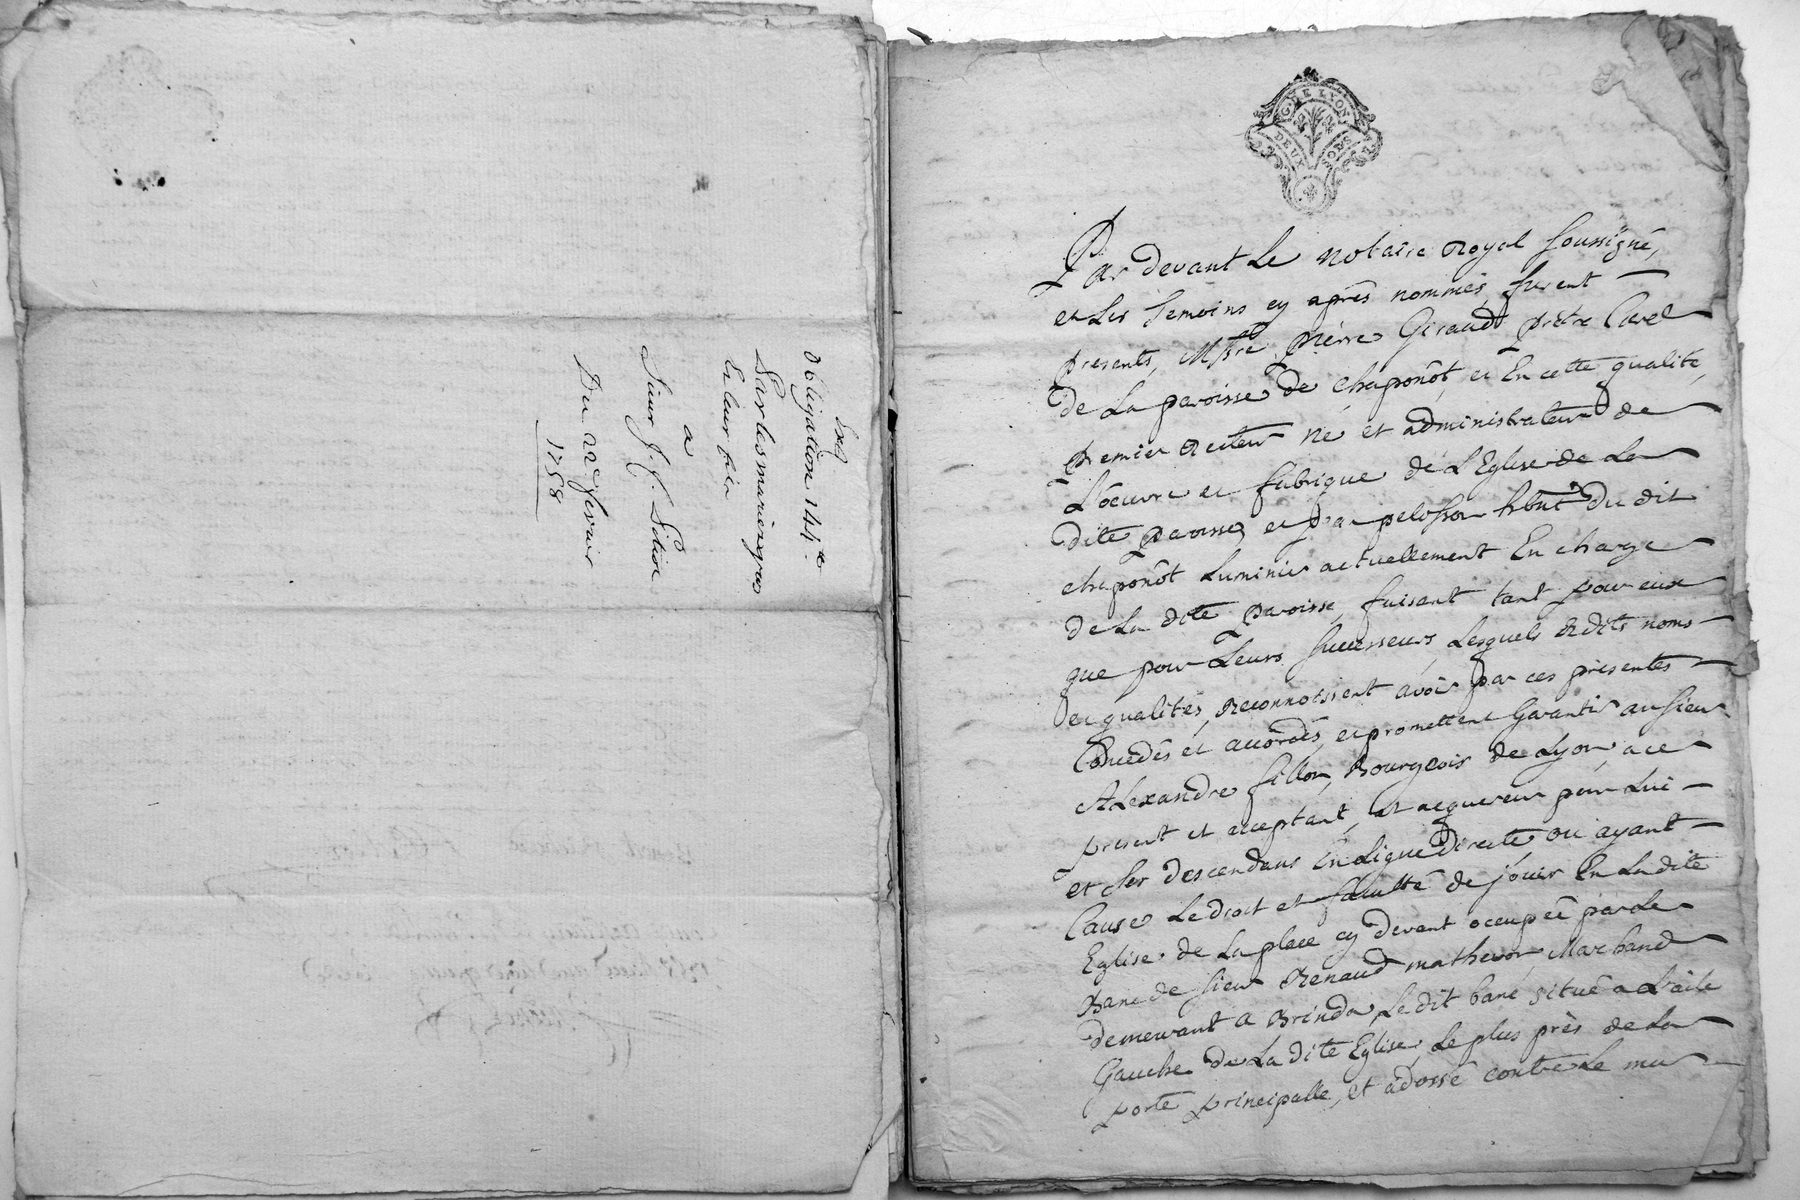 Obligation 144ᵗᵗ
a
Sieur J. f.
Du 22ᵉ fevrier
1758
G. DE LYON
DEUX SOLS
Par devant Le Notaire Royal Soussigné,
et Les temoins cy après nommés, furent
presents, Mssʳᵉ pierre Giraud prêtre Curé
de La paroisse de chaponôt, et En cette qualité,
premier Recteur Né et administrateur de
L'oeuvre et fabrique de L'Eglise de La
dite paroisse, et pelosson hbnt du dit
chaponôt Luminier actuellement En charge
de La dite paroisse, faisant tant pour eux
que pour Leurs successeurs, Lesquels Edits noms
et qualités, Reconnoissent avoir par ces presentes
Concedés et accordés, et promettent Garantir au sieur
ALexandre fillon, Bourgeois de Lyon, a ce
present et acceptant, et acquereur pour Lui
et ses descendans En Ligne Directe ou ayant
Cause Le droit et faculté de joüir En La dite
Eglise de La place cy devant occupée par Le
Banc de sieur Renaud mathevon, Marchand
demeurant a Brinda, Le dit banc situé a L'aile
Gauche de La dite Eglise, Le plus près de La
porte principalle, et adossé contre Le mur